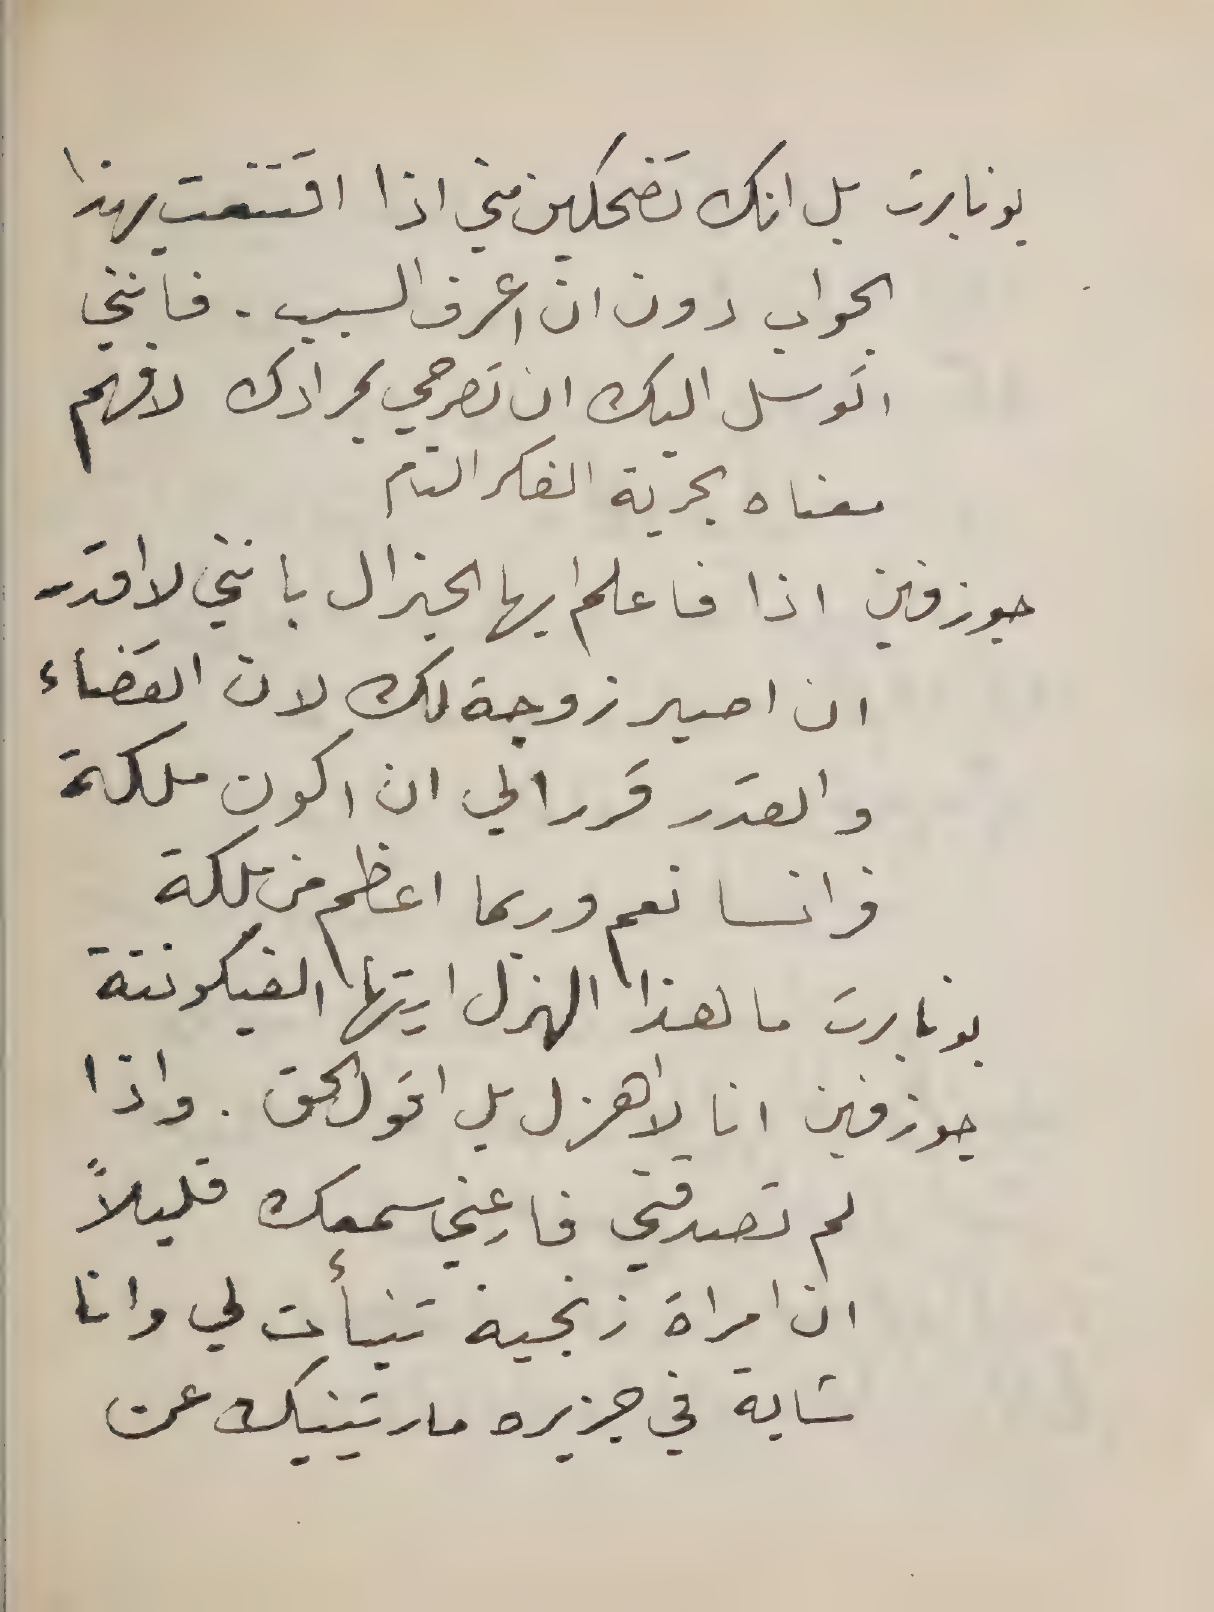 بونابرت بل انك تضحكين مني اذا اقتنعت بهذا
الجواب دون ان اعرف السبب . فانني
اتوسل اليك ان تصرحي بمرادك لافهم
معناه بحريّة الفكر التام
جوزفين اذا فاعلم ايها الجنرال بانني لا اقدر
ان اصير زوجة لك لان القضاء
والقدر قررا لي ان اكون ملكة
فرانسا نعم وربما اعظم من ملكة
بونابرت ما لهذا الهزل ايتها الفيكونتة
جوزفين انا لا اهزل بل اقول الحق . واذا
لم تصدقني فارعني سمعك قليلاً
ان امراة زنجية تنبأت لي وانا
شابة في جزيره مارتينيك عن